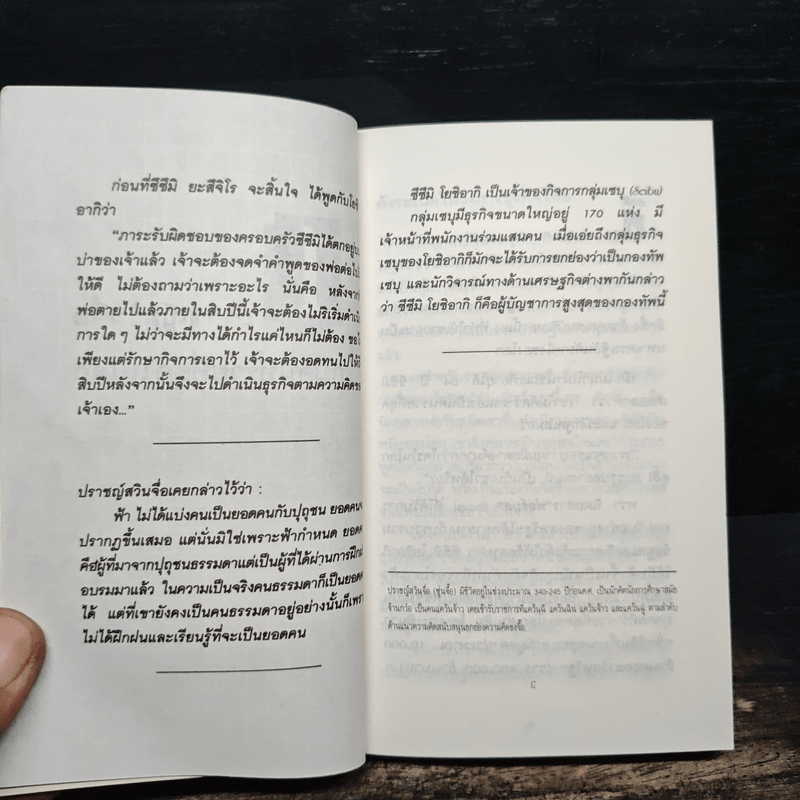 ก่อนที่ซีซึมิ ยะสึจิโร จะสิ้นใจ ได้พูดกับโยชิ
อากิว่า
“ภาระรับผิดชอบของครอบครัวซีซึมิได้ตกอยู่บน
บ่าของเจ้าแล้ว เจ้าจะต้องจดจำคำพูดของพ่อต่อไปนี้
ให้ดี ไม่ต้องถามว่าเพราะอะไร นั่นคือ หลังจาก
พ่อตายไปแล้วภายในสิบปีนี้เจ้าจะต้องไม่ริเริ่มดำเนิน
การใด ๆ ไม่ว่าจะมีทางได้กำไรแค่ไหนก็ไม่ต้อง ขอ
เพียงแต่รักษากิจการเอาไว้ เจ้าจะต้องอดทนไปให้
สิบปีหลังจากนั้นจึงจะไปดำเนินธุรกิจตามความคิดของ
เจ้าเอง...”
ปราชญ์สวินจื่อเคยกล่าวไว้ว่า :
ฟ้า ไม่ได้แบ่งคนเป็นยอดคนกับปุถุชน ยอดคน
ปรากฏขึ้นเสมอ แต่นั่นมิใช่เพราะฟ้ากำหนด ยอดคน
คือผู้ที่มาจากปุถุชนธรรมดาแต่เป็นผู้ที่ได้ผ่านการฝึก
อบรมมาแล้ว ในความเป็นจริงคนธรรมดาก็เป็นยอดคน
ได้ แต่ที่เขายังคงเป็นคนธรรมดาอยู่อย่างนั้นก็เพราะ
ไม่ได้ฝึกฝนและเรียนรู้ที่จะเป็นยอดคน
ซีซึมิ โยชิอากิ เป็นเจ้าของกิจการกลุ่มเซบุ (Seibu)
กลุ่มเซบุมีธุรกิจขนาดใหญ่อยู่ 170 แห่ง มี
เจ้าหน้าที่พนักงานร่วมแสนคน เมื่อเอ่ยถึงกลุ่มธุรกิจ
เซบุของโยชิอากิก็มักจะได้รับการยกย่องว่าเป็นกองทัพ
เซบุ และนักวิจารณ์ทางด้านเศรษฐกิจต่างพากันกล่าว
ว่า ซีซึมิ โยชิอากิ ก็คือผู้บัญชาการสูงสุดของกองทัพนี้
ปราชญ์สวินจื่อ (ซุ่นจื๊อ) มีชีวิตอยู่ในช่วงประมาณ 340-245 ปีก่อนค.ศ. เป็นนักคิดนักการศึกษาสมัย
จ้านกว๋อ เป็นคนแคว้นจ้าว เคยเข้ารับราชการที่แคว้นฉี แคว้นฉิน แคว้นจ้าว และแคว้นฉู่ ตามลำดับ
ด้านแนวความคิดสนับสนุนยกย่องความคิดขงจื้อ
17